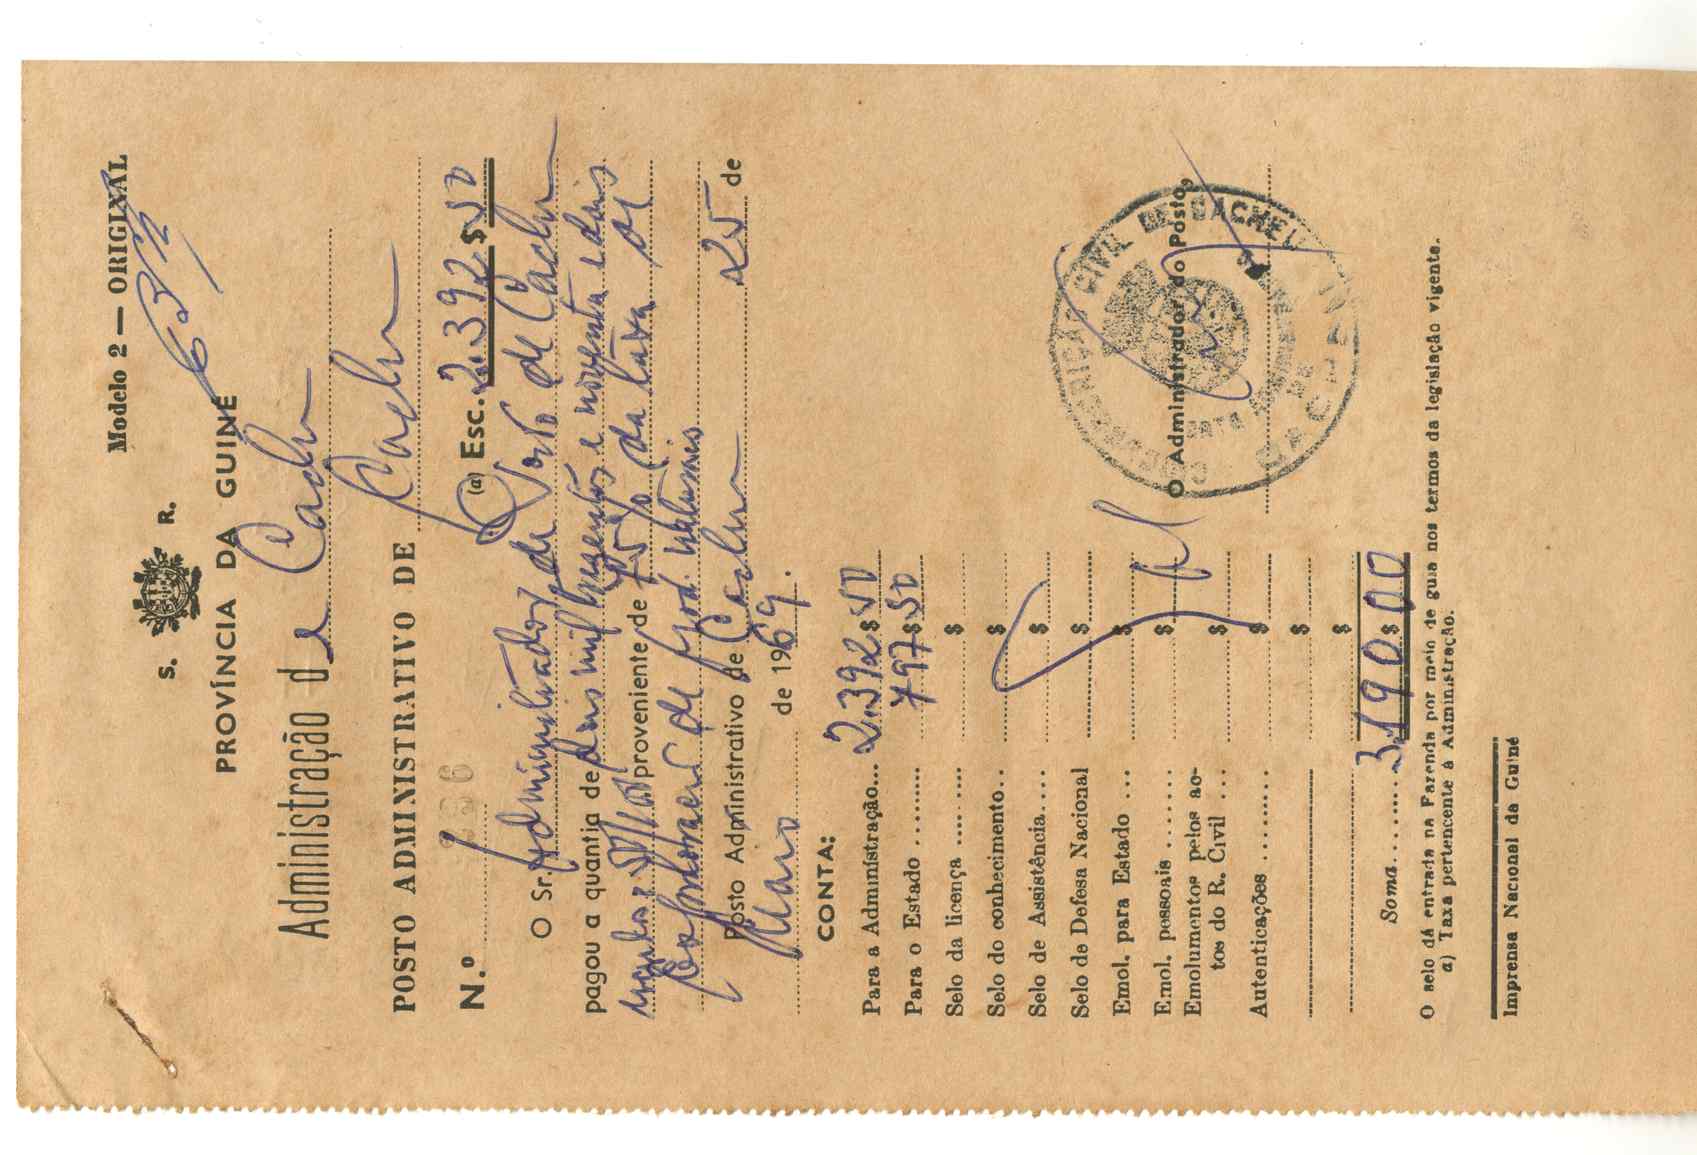 Modelo 2 — ORIGINAL
S. R.
PROVÍNCIA DA GUINÉ
Administração de Cacheu
POSTO ADMINISTRATIVO DE Cacheu
N.º (a) Esc. 2.392$50
O Sr. Administrador do Posto de Cacheu
pagou a quantia de dois mil trezentos e noventa e dois
proveniente de 75% da taxa de
de prod. naturais
Posto Administrativo de Cacheu 25 de
Maio de 1969.
CONTA:
Para a Administração... 2.392$50
Para o Estado ......... 797$50
Selo da licença .... ...... $
Selo do conhecimento.. $
Selo de Assistência.... $
Selo de Defesa Nacional $
Emol. para Estado ... $
Emol. pessoais ........ $
Emolumentos pelos ac-
tos do R. Civil ... $
Autenticações ......... $
$
$
Soma........ 3.190$00
O Administrador do Posto,
CIVIL DE CACHEU
O selo dá entrada na Fazenda por meio de guia nos termos da legislação vigente.
a) Taxa pertencente à Administração.
Imprensa Nacional da Guiné